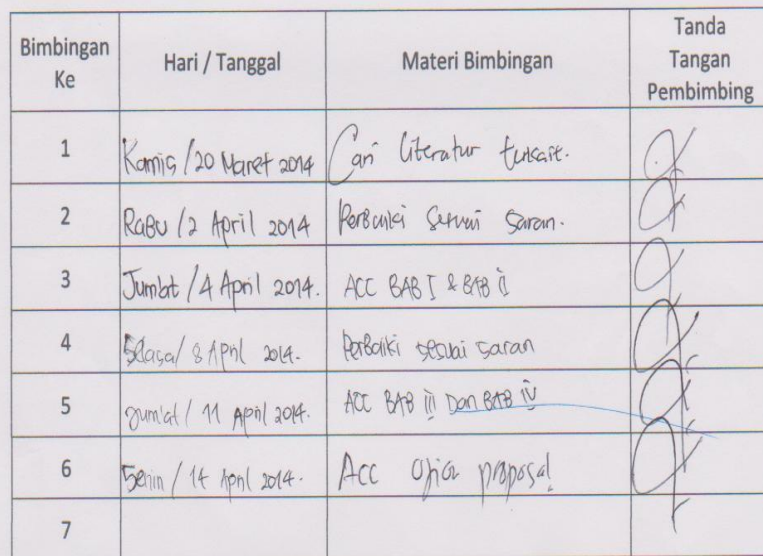 Bimbingan Ke Hari / Tanggal Materi Bimbingan Tanda Tangan Pembimbing
1 Kamis / 20 Maret 2014 Cari literatur terkait.
2 Rabu / 2 April 2014 Perbaiki sesuai saran.
3 Jumat / 4 April 2014. ACC BAB I & BAB II
4 Selasa / 8 April 2014. Perbaiki sesuai saran
5 Jum'at / 11 April 2014. ACC BAB III Dan BAB IV
6 Senin / 14 April 2014. Acc Ujian proposal
7